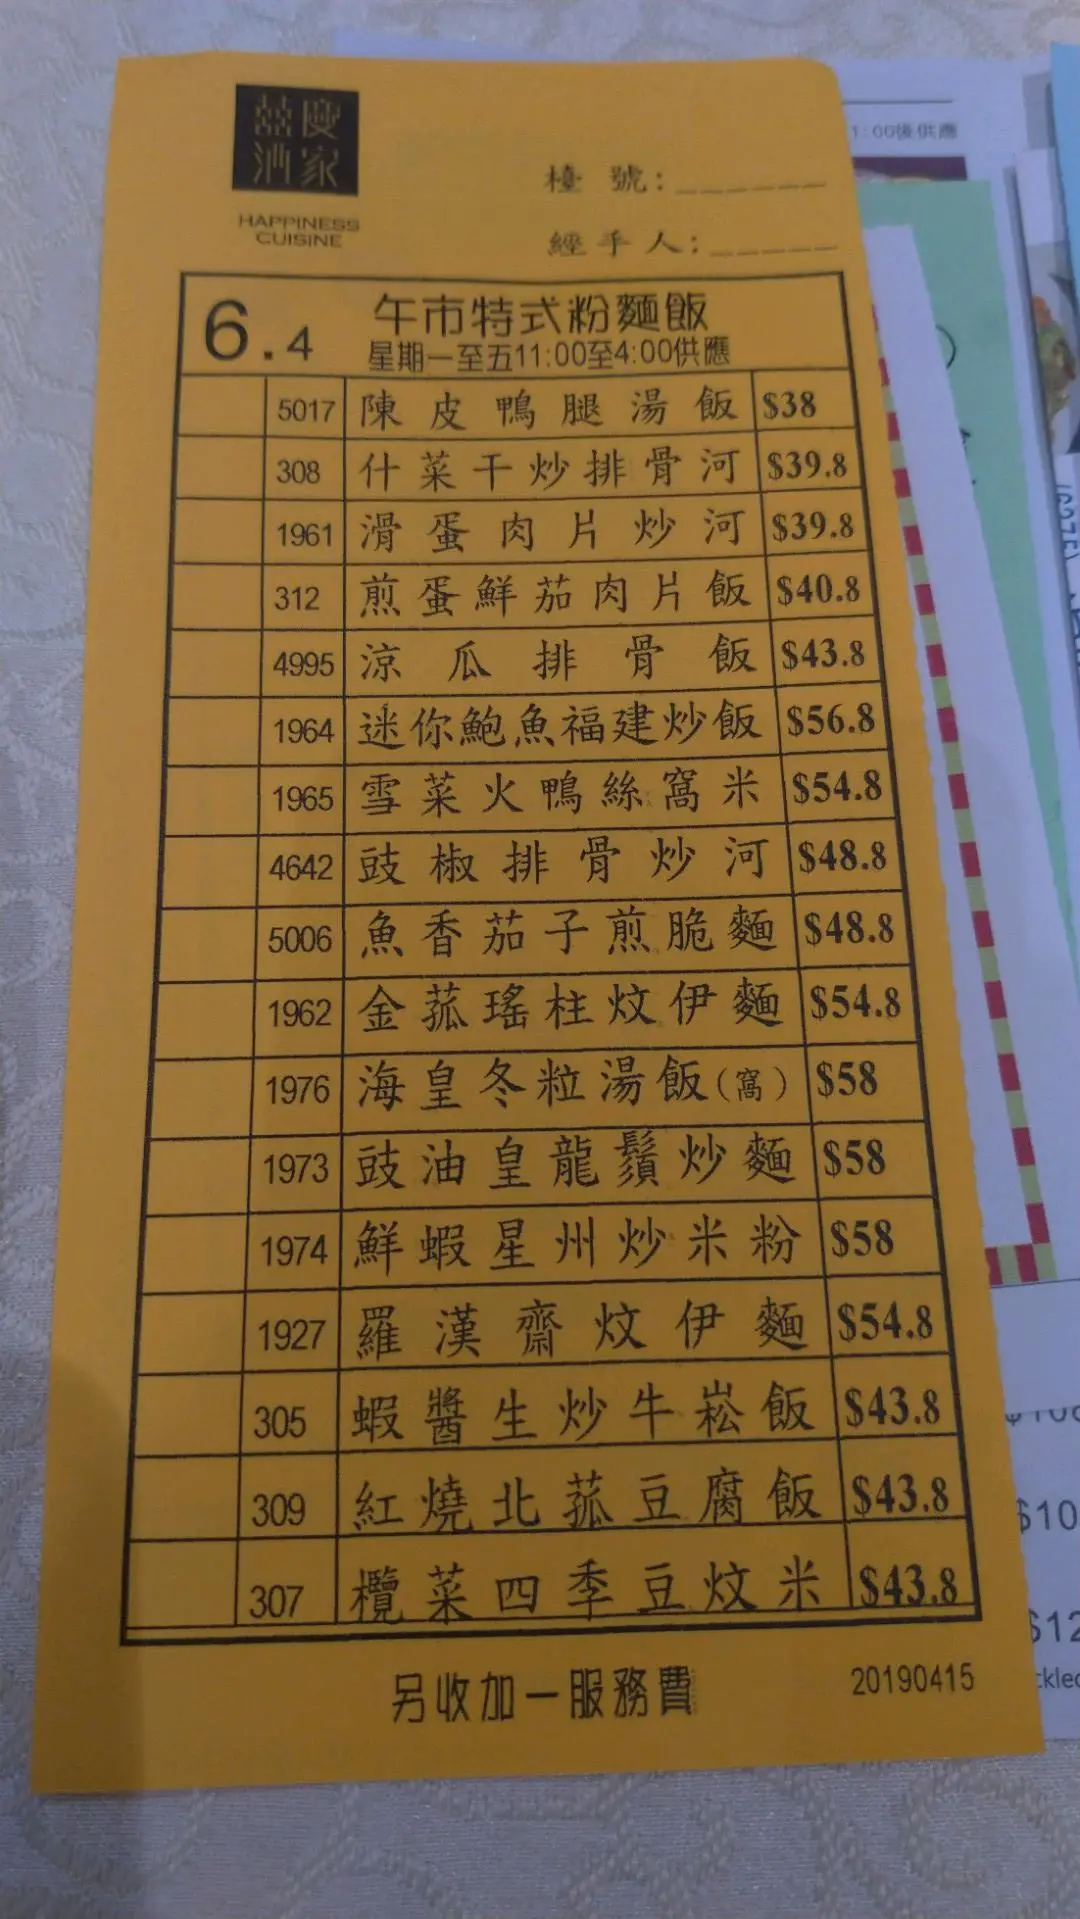 囍慶
酒家
HAPPINESS
CUISINE
檯號:______
經手人:_____
6.4
午市特式粉麵飯
星期一至五11:00至4:00供應
5017 陳皮鴨腿湯飯 $38
308 什菜干炒排骨河 $39.8
1961 滑蛋肉片炒河 $39.8
312 煎蛋鮮茄肉片飯 $40.8
4995 涼瓜排骨飯 $43.8
1964 迷你鮑魚福建炒飯 $56.8
1965 雪菜火鴨絲窩米 $54.8
4642 豉椒排骨炒河 $48.8
5006 魚香茄子煎脆麵 $48.8
1962 金菰瑤柱炆伊麵 $54.8
1976 海皇冬粒湯飯(窩) $58
1973 豉油皇龍鬚炒麵 $58
1974 鮮蝦星州炒米粉 $58
1927 羅漢齋炆伊麵 $54.8
305 蝦醬生炒牛崧飯 $43.8
309 紅燒北菰豆腐飯 $43.8
307 欖菜四季豆炆米 $43.8
另收加一服務費
20190415
1:00後供應
$10
$12